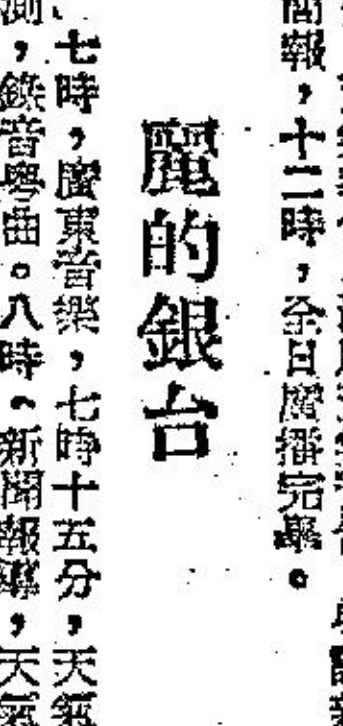 簡報，十二時，全日廣播完畢。
麗的銀台
七時，廣東音樂，七時十五分，天氣
測，錄音粵曲。八時。新聞報導，天氣